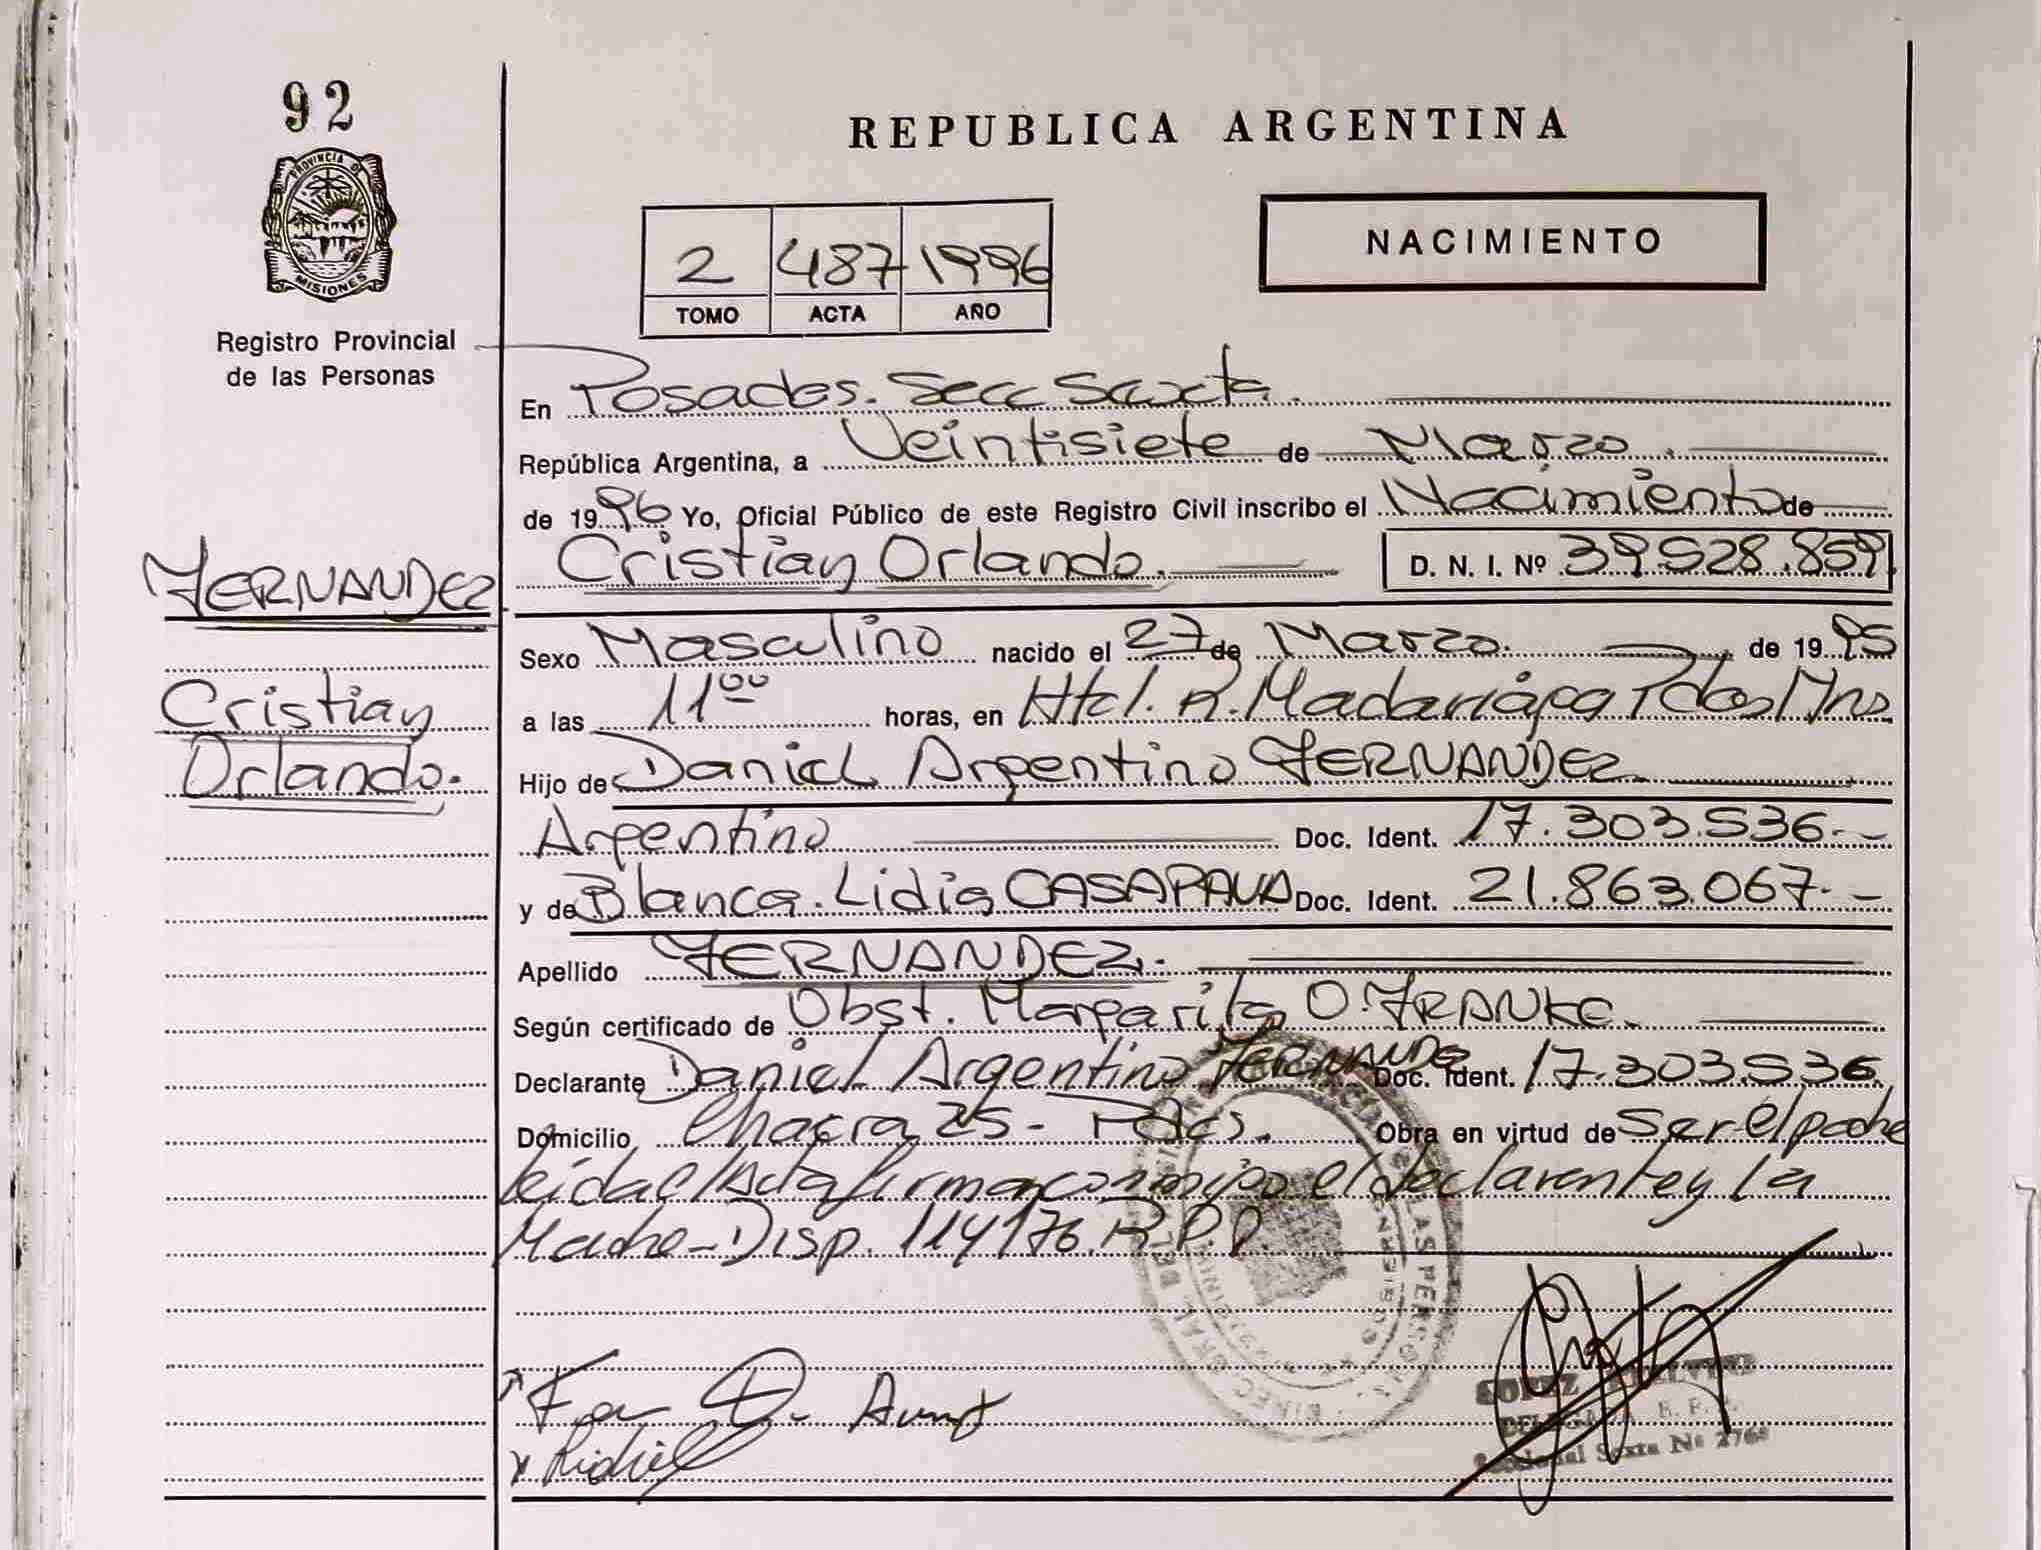 92
PROVINCIA DE
MISIONES
Registro Provincial
de las Personas
FERNANDEZ
Cristian
Orlando.
REPUBLICA ARGENTINA
2 487 1996
TOMO ACTA AÑO
NACIMIENTO
En Posadas. Secc Sexta.
República Argentina, a Veintisiete de Marzo.
de 1996 Yo, Oficial Público de este Registro Civil inscribo el Nacimiento de
Cristian Orlando. D. N. I. Nº 39.528.859
Sexo Masculino nacido el 27 de Marzo. de 1995
a las 11 00 horas, en Htal. R. Madariaga Pdas Mns
Hijo de Daniel Argentino FERNANDEZ
Argentino Doc. Ident. 17.303.536.-
y de Blanca. Lidia CASAPAUD Doc. Ident. 21.863.067.-
Apellido FERNANDEZ.
Según certificado de Obst. Margarita O. FRANKE.
Declarante Daniel Argentino FERNANDE Doc. Ident. 17.303.536
Domicilio Chacra 25 - Pdas. Obra en virtud de Ser el padre
leída el Acta firman conmigo el declarante y la
Madre - Disp. 114/76. R.P.P.
LOPEZ
DELEGADA R. P. P.
Seccional Sexta Nº 276